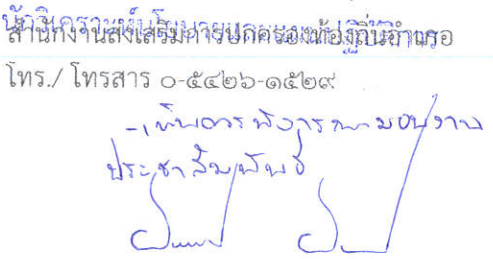 นักวิเคราะห์นโยบายและแผนปฏิบัติการ
สำนักงานส่งเสริมการปกครองท้องถิ่นอำเภอ
โทร./ โทรสาร ๐-๕๔๒๖-๑๕๒๙
-เห็นควรพิจารณามอบงาน
ประชาสัมพันธ์